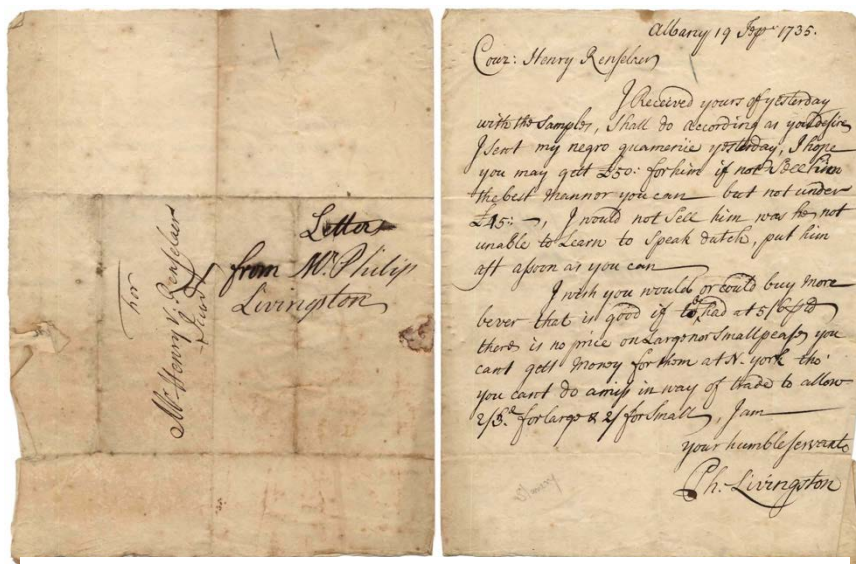 For
Mr. Henry V. Renselaer
Letter
from Mr. Philip
Livingston
Albany 19 1735.
Couz: Henry Renselaer
I Received yours of yesterday
with the Samples, Shall do according as you desire
I Sent my negro quamerije yesterday, I hope
you may gett £50: for him if not Sell him
the best mannor you can but not under
I would not Sell him was he not
unable to Learn to Speak dutch, put him
aff assoon as you can
I wish you would or could buy more
bever that is good if to be had at
there is no price on Large nor Small pease you
cant gett money for them at N. york tho'
you cant do amiss in way of trade to allow
for large & 2/ for Small, I am
your humble servant
Ph. Livingston